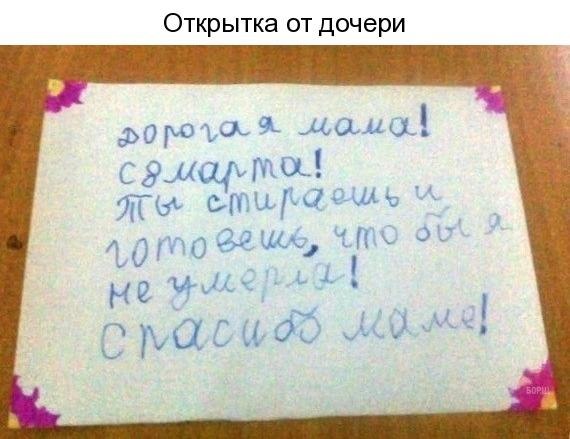 Открытка от дочери
дорогая мама!
с 8 марта!
Ты стираешь и
готовешь, что бы я
не умерла!
спасибо маме!
БОРЩ